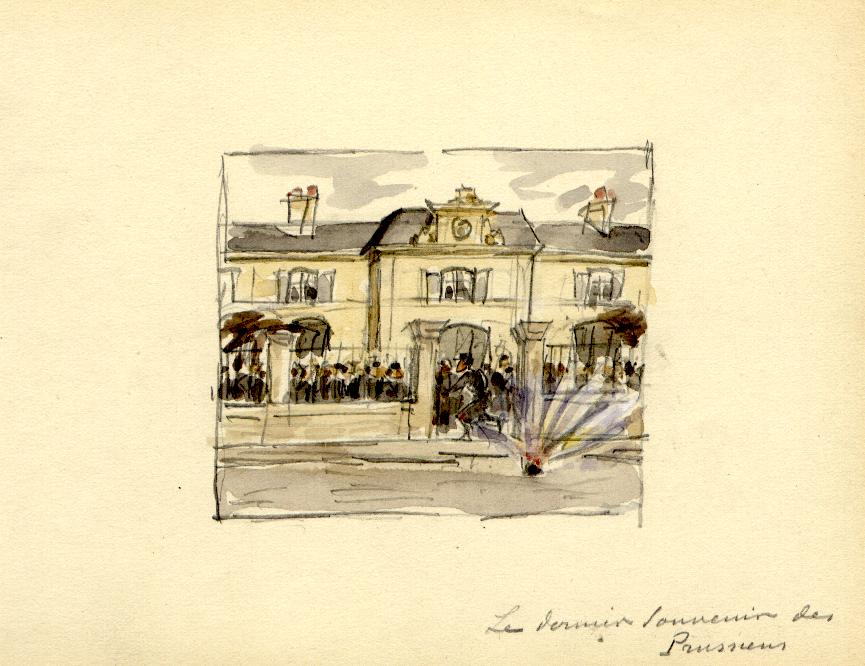 Le dernier Souvenir des
Prussiens